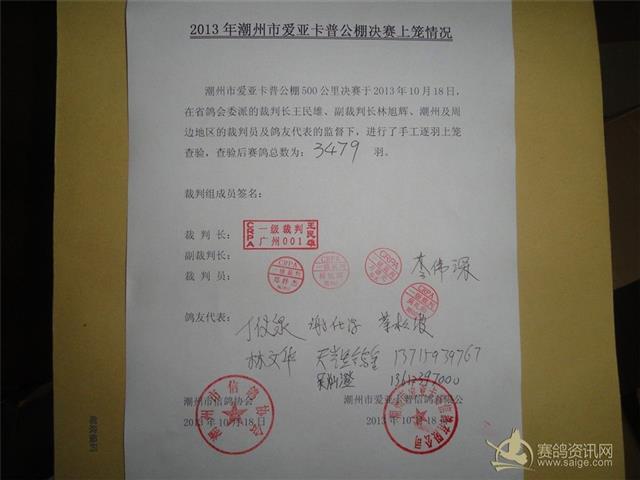 2013年潮州市爱亚卡普公棚决赛上笼情况
潮州市爱亚卡普公棚500公里决赛于2013年10月18日,
在省鸽会委派的裁判长王民雄、副裁判长林旭辉、潮州及周
边地区的裁判员及鸽友代表的监督下，进行了手工逐羽上笼
查验，查验后赛鸽总数为：3479羽。
裁判组成员签名：
裁 判 长：
CRPA 一级裁判 广州001 王民雄
副裁判长：
裁 判 员：
CRPA 一级裁判
CRPA
李伟深
鸽友代表：
林文华 13715939767
潮州市信鸽协会
潮州市爱亚卡普信鸽有限公
2013年10月18日
2013年10月18日
潮州市信鸽协会
赛鸽资讯网
www.saige.com